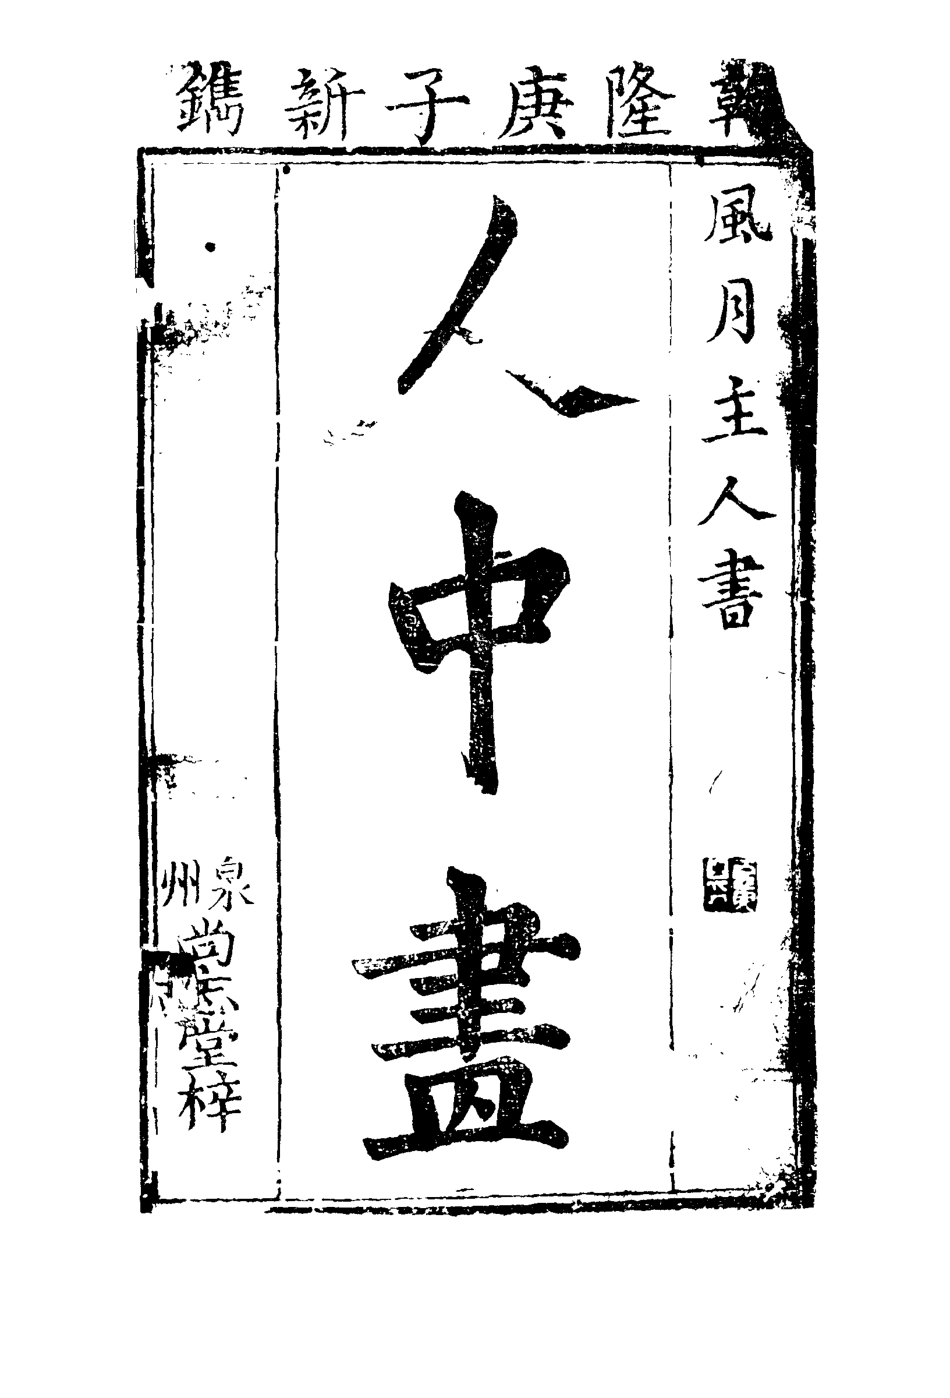 乾隆庚子新鐫
風月主人書
人中畫
泉州
尚志堂梓